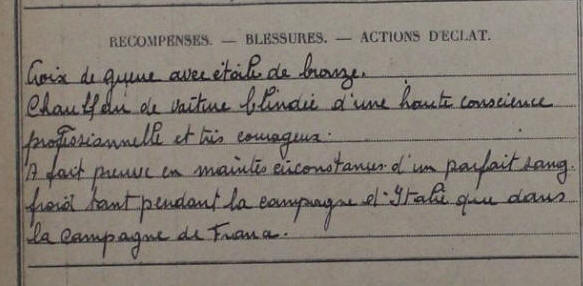 RECOMPENSES. — BLESSURES. — ACTIONS D'ECLAT.
Croix de guerre avec étoile de bronze.
Chauffeur de voiture blindée d'une haute conscience
professionnelle et très courageux.
A fait preuve en maintes circonstances d'un parfait sang.
froid tant pendant la campagne d'Italie que dans
la campagne de France.